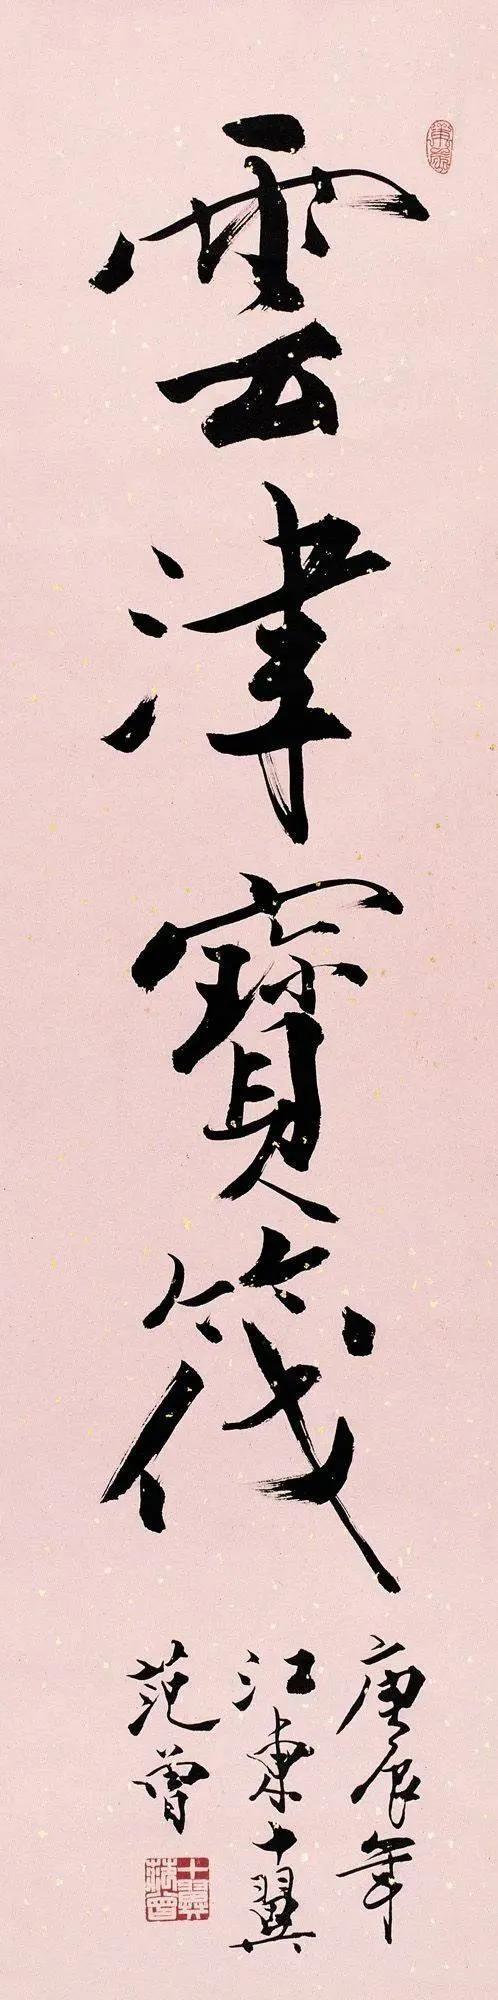 雲津寶筏
庚辰年
江東十翼
范曾
十翼范曾